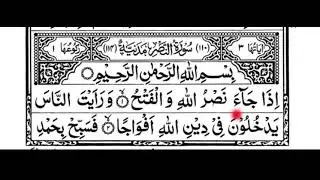 اٰيَاتُهَا ٣ (١١٠) سُوْرَةُ النَّصْرِ مَدَنِيَّةٌ (١١٤) رُكُوْعُهَا ١
بِسْمِ اللّٰهِ الرَّحْمٰنِ الرَّحِيْمِ
اِذَا جَآءَ نَصْرُ اللّٰهِ وَالْفَتْحُ ۙ١ وَرَاَيْتَ النَّاسَ
يَدْخُلُوْنَ فِيْ دِيْنِ اللّٰهِ اَفْوَاجًا ۙ٢ فَسَبِّحْ بِحَمْدِ